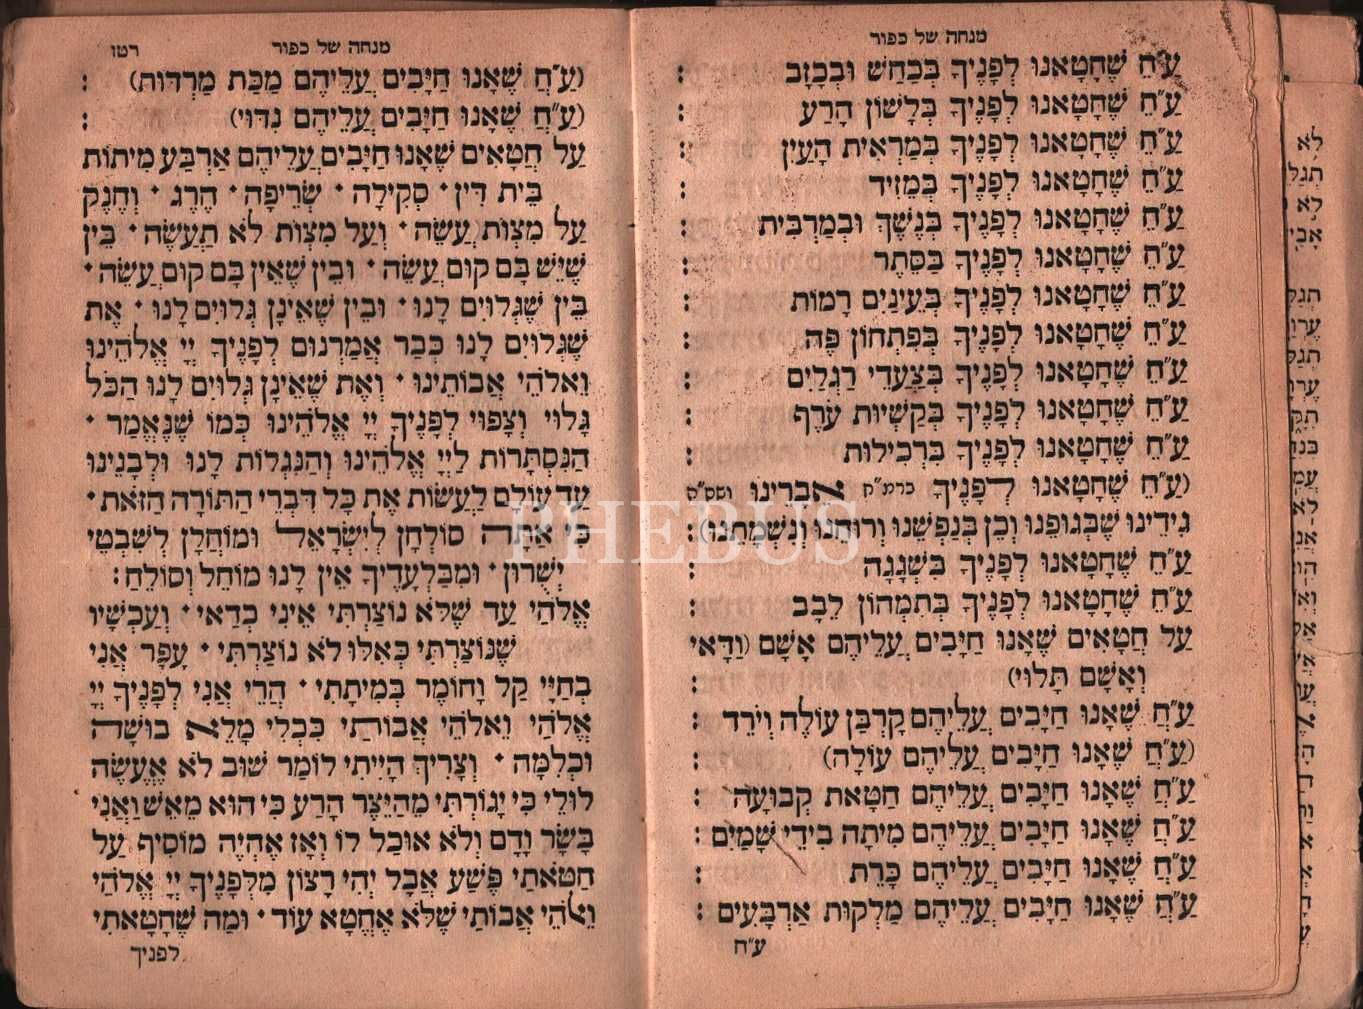 מנחה של כפור
ע״ח שֶׁחָטָאנוּ לְפָנֶיךָ בְּכַחַשׁ וּבְכָזָב :
ע״ח שֶׁחָטָאנוּ לְפָנֶיךָ בְּלָשׁוֹן הָרַע :
ע״ח שֶׁחָטָאנוּ לְפָנֶיךָ בְּמַרְאִית הָעַיִן :
ע״ח שֶׁחָטָאנוּ לְפָנֶיךָ בְּמֵזִיד :
ע״ח שֶׁחָטָאנוּ לְפָנֶיךָ בְּנֶשֶׁךְ וּבְמַרְבִּית :
ע״ח שֶׁחָטָאנוּ לְפָנֶיךָ בַּסֵּתֶר :
ע״ח שֶׁחָטָאנוּ לְפָנֶיךָ בְּעֵינַיִם רָמוֹת :
ע״ח שֶׁחָטָאנוּ לְפָנֶיךָ בְּפִתְחוֹן פֶּה :
ע״ח שֶׁחָטָאנוּ לְפָנֶיךָ בְּצַעֲדֵי רַגְלַיִם :
ע״ח שֶׁחָטָאנוּ לְפָנֶיךָ בְּקַשְׁיוּת עֹרֶף :
ע״ח שֶׁחָטָאנוּ לְפָנֶיךָ בִּרְכִילוּת :
(ע״ח שֶׁחָטָאנוּ לְפָנֶיךָ ברמ״ח אֵבָרֵינוּ ושס״ה
גִידֵינוּ שֶׁבְּגוּפֵנוּ וְכֵן בְּנַפְשֵׁנוּ וְרוּחֵנוּ וְנִשְׁמָתֵנוּ) :
ע״ח שֶׁחָטָאנוּ לְפָנֶיךָ בִּשְׁגָגָה :
ע״ח שֶׁחָטָאנוּ לְפָנֶיךָ בְּתִמְהוֹן לֵבָב :
עַל חֲטָאִים שֶׁאָנוּ חַיָּבִים עֲלֵיהֶם אָשָׁם (וַדָּאי
וְאָשָׁם תָּלוּי) :
ע״ח שֶׁאָנוּ חַיָּבִים עֲלֵיהֶם קָרְבַּן עוֹלֶה וְיוֹרֵד :
(ע״ח שֶׁאָנוּ חַיָּבִים עֲלֵיהֶם עוֹלָה) :
ע״ח שֶׁאָנוּ חַיָּבִים עֲלֵיהֶם חַטָּאת קְבוּעָה :
ע״ח שֶׁאָנוּ חַיָּבִים עֲלֵיהֶם מִיתָה בִידֵי שָׁמַיִם :
ע״ח שֶׁאָנוּ חַיָּבִים עֲלֵיהֶם כָּרֵת :
ע״ח שֶׁאָנוּ חַיָּבִים עֲלֵיהֶם מַלְקוּת אַרְבָּעִים :
ע״ח
מנחה של כפור רטו
(ע״ח שֶׁאָנוּ חַיָּבִים עֲלֵיהֶם מַכַּת מַרְדּוּת) :
(ע״ח שֶׁאָנוּ חַיָּבִים עֲלֵיהֶם נִדּוּי) :
עַל חֲטָאִים שֶׁאָנוּ חַיָּבִים עֲלֵיהֶם אַרְבַּע מִיתוֹת
בֵּית דִּין · סְקִילָה · שְׂרֵיפָה · הֶרֶג · וְחֶנֶק
עַל מִצְוֹת עֲשֵׂה · וְעַל מִצְוֹת לֹא תַעֲשֶׂה · בֵּין
שֶׁיֵּשׁ בָּם קוּם עֲשֵׂה · וּבֵין שֶׁאֵין בָּם קוּם עֲשֵׂה ·
בֵּין שֶׁגְּלוּיִם לָנוּ · וּבֵין שֶׁאֵינָן גְּלוּיִם לָנוּ · אֶת
שֶׁגְּלוּיִם לָנוּ כְּבָר אֲמַרְנוּם לְפָנֶיךָ יְיָ אֱלֹהֵינוּ
וֵאלֹהֵי אֲבוֹתֵינוּ · וְאֶת שֶׁאֵינָן גְּלוּיִם לָנוּ הַכֹּל
גָּלוּי וְצָפוּי לְפָנֶיךָ יְיָ אֱלֹהֵינוּ כְּמוֹ שֶׁנֶּאֱמַר ·
הַנִּסְתָּרוֹת לַיְיָ אֱלֹהֵינוּ וְהַנִּגְלוֹת לָנוּ וּלְבָנֵינוּ
עַד עוֹלָם לַעֲשׂוֹת אֶת כָּל דִּבְרֵי הַתּוֹרָה הַזֹּאת ·
כִּי אַתָּה סוֹלְחָן לְיִשְׂרָאֵל וּמוֹחֲלָן לְשִׁבְטֵי
יְשֻׁרוּן · וּמִבַּלְעָדֶיךָ אֵין לָנוּ מוֹחֵל וְסוֹלֵחַ :
אֱלֹהַי עַד שֶׁלֹּא נוֹצַרְתִּי אֵינִי כְדַאי · וְעַכְשָׁיו
שֶׁנּוֹצַרְתִּי כְּאִלּוּ לֹא נוֹצַרְתִּי · עָפָר אֲנִי
בְחַיָּי קַל וָחוֹמֶר בְּמִיתָתִי · הֲרֵי אֲנִי לְפָנֶיךָ יְיָ
אֱלֹהַי וֵאלֹהֵי אֲבוֹתַי כִּכְלִי מָלֵא בוּשָׁה
וּכְלִמָּה · וְצָרִיךְ הָיִיתִי לוֹמַר שׁוּב לֹא אֶעֱשֶׂה
לוּלֵי כִּי יָגוֹרְתִּי מֵהַיֵּצֶר הָרַע כִּי הוּא מֵאֵשׁ וַאֲנִי
בָּשָׂר וָדָם וְלֹא אוּכַל לוֹ וְאָז אֶהְיֶה מוֹסִיף עַל
חַטֹּאתַי פֶּשַׁע אֲבָל יְהִי רָצוֹן מִלְּפָנֶיךָ יְיָ אֱלֹהַי
וֵאלֹהֵי אֲבוֹתַי שֶׁלֹּא אֶחֱטָא עוֹד · וּמַה שֶּׁחָטָאתִי
לפניך
PHEBUS